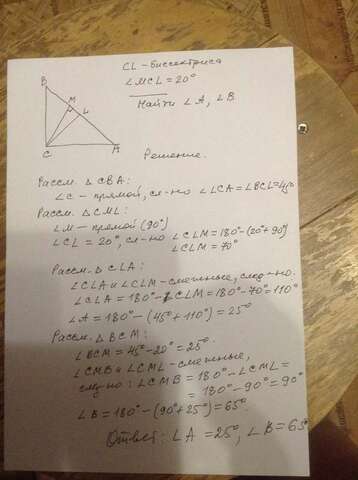 CL - биссектриса
∠MCL = 20°
Найти ∠A, ∠B
B
M
L
C
A
Решение.
Рассм. △CBA:
∠C - прямой, сл-но ∠LCA = ∠BCL = 45°
Рассм. △CML:
∠M - прямой (90°)
∠CL = 20°, сл-но ∠CLM = 180° - (20° + 90°)
∠CLM = 70°
Рассм. △CLA:
∠CLA и ∠CLM - смежные, след-но.
∠CLA = 180° - ∠CLM = 180° - 70° = 110°
∠A = 180° - (45° + 110°) = 25°
Рассм. △BCM:
∠BCM = 45° - 20° = 25°.
∠CMB и ∠CML - смежные,
след-но: ∠CMB = 180° - ∠CML =
= 180° - 90° = 90°
∠B = 180° - (90° + 25°) = 65°.
Ответ: ∠A = 25°, ∠B = 65°